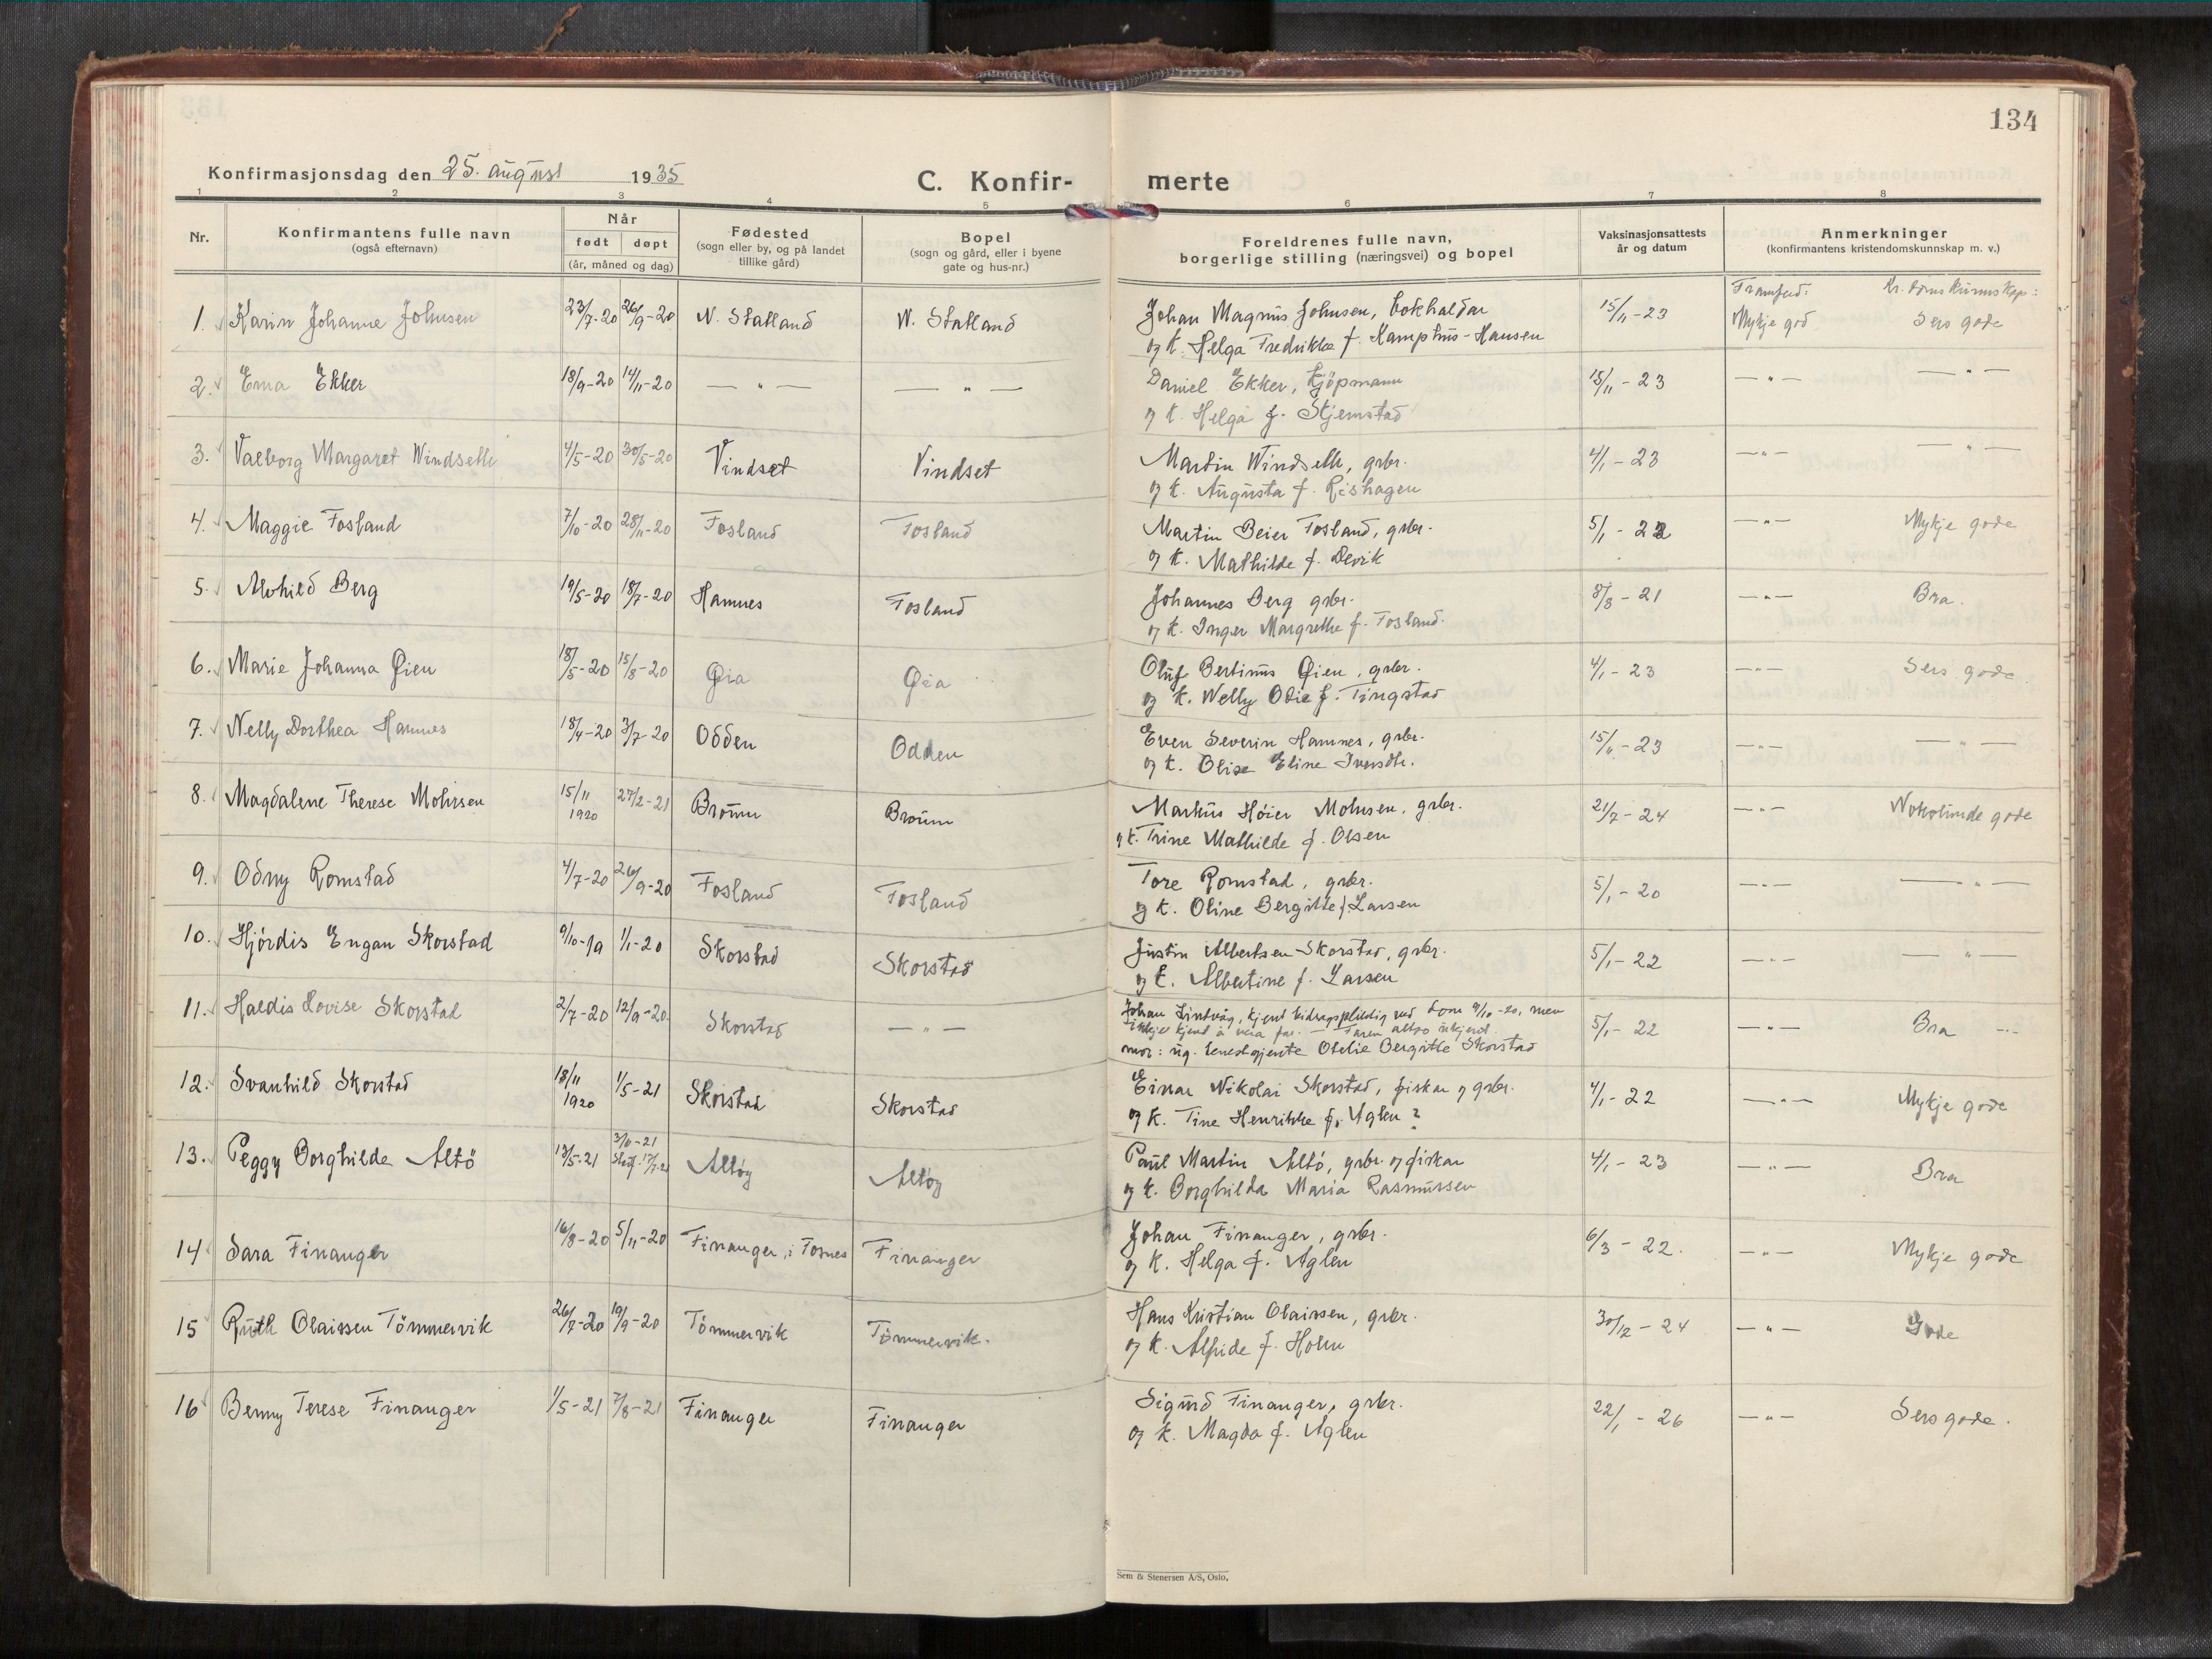 134
Konfirmasjonsdag den 25. august 1935
C. Konfir- merte
1 2 3 4 5 6 7 8
Nr.
Konfirmantens fulle navn
(også efternavn)
Når
født døpt
(år, måned og dag)
Fødested
(sogn eller by, og på landet
tillike gård)
Bopel
(sogn og gård, eller i byene
gate og hus-nr.)
Foreldrenes fulle navn,
borgerlige stilling (næringsvei) og bopel
Vaksinasjonsattests
år og datum
Anmerkninger
(konfirmantens kristendomskunnskap m. v.)
Framferd: Kr. domskunnskap:
1. Karin Johanne Johnsen 23/7-20 26/9-20 N. Statland N. Statland Johan Magnus Johnsen, bokhaldar 15/11-23 Mykje god Sers gode
og k. Helga Fredrikke f. Kamphus-Hansen
2. Erna Ekker 18/9-20 14/11-20 — " — — " — Daniel Ekker, kjöpmann 15/11-23 — " — — " —
og k. Helga f. Stjernstad
3. Valborg Margaret Windseth 4/5-20 30/5-20 Vindset Vindset Martin Windseth, grbr. 4/1-23 — " — — " —
og k. Augusta f. Rishagen
4. Maggie Fosland 7/10-20 28/11-20 Fosland Fosland Martin Beier Fosland, grbr. 5/1-22 — " — Mykje gode
og k. Mathilde f. Devik
5. Alvhild Berg 19/5-20 18/7-20 Hamnes Fosland Johannes Berg grbr. 8/8-21 — " — Bra.
og k. Inger Margrethe f. Fosland.
6. Marie Johanna Øien 18/5-20 15/8-20 Øia Øia Oluf Bertinus Øien, grbr. 4/1-23 — " — Sers gode.
og k. Welly Odie f. Tingstad
7. Nelly Dorthea Hamnes 18/4-20 3/7-20 Odden Odden Even Severin Hamnes, grbr. 15/11-23 — " — — " —
og k. Olise Eline Iversdtr.
8. Magdalene Therese Mohnsen 15/11 1920 27/2-21 Brørnn Brørnn Markus Høier Mohnsen, grbr. 21/7-24 — " — Nokolunde gode
og k. Trine Mathilde f. Olsen
9. Odny Romstad 4/7-20 26/9-20 Fosland Fosland Tore Romstad, grbr. 5/1-20 — " — — " —
og k. Oline Bergitte f. Larsen
10. Hjördis Engan Skorstad 9/10-19 1/1-20 Skorstad Skorstad Justin Albertsen Skorstad, grbr. 5/1-22 — " — — " —
og k. Albertine f. Larsen
11. Haldis Lovise Skorstad 2/7-20 12/9-20. Skorstad — " — Johan Lindvåg, kjent bidragspliktig ved dom 9/10-20, men 5/1-22 — " — Bra — " —
ikkje kjend å vera far. — Faren altso ukjend.
mor: ug. tenestgjente Otelie Bergitte Skorstad
12. Svanhild Skorstad 18/11 1920 1/5-21 Skorstad Skorstad Einar Nikolai Skorstad, fiskar og grbr. 4/1-22 — " — Mykje gode
og k. Tine Henrikke f. Aglen ?
13. Peggy Borghilde Altö 13/5-21 3/6-21 Altøy Altøy Paul Martin Altö, grbr. og fiskar 4/1-23 — " — Bra
og k. Borghilda Maria Rasmussen
14 Sara Finanger 16/8-20 5/11-20 Finanger, i Fosnes Finanger Johan Finanger, grbr. 6/3-22. — " — Mykje gode
og k. Helga f. Aglen
15 Ruth Olaissen Tömmervik 26/7-20 19/9-20 Tömmervik Tömmervik. Hans Kristian Olaissen, grbr. 30/12-24 — " — Gode
og k. Alfride f. Holm
16 Benny Terese Finanger 1/5-21 7/8-21 Finanger Finanger Sigurd Finanger, grbr. 22/1-26 — " — Sers gode.
og k. Magda f. Aglen
Sem & Stenersen A/S, Oslo,